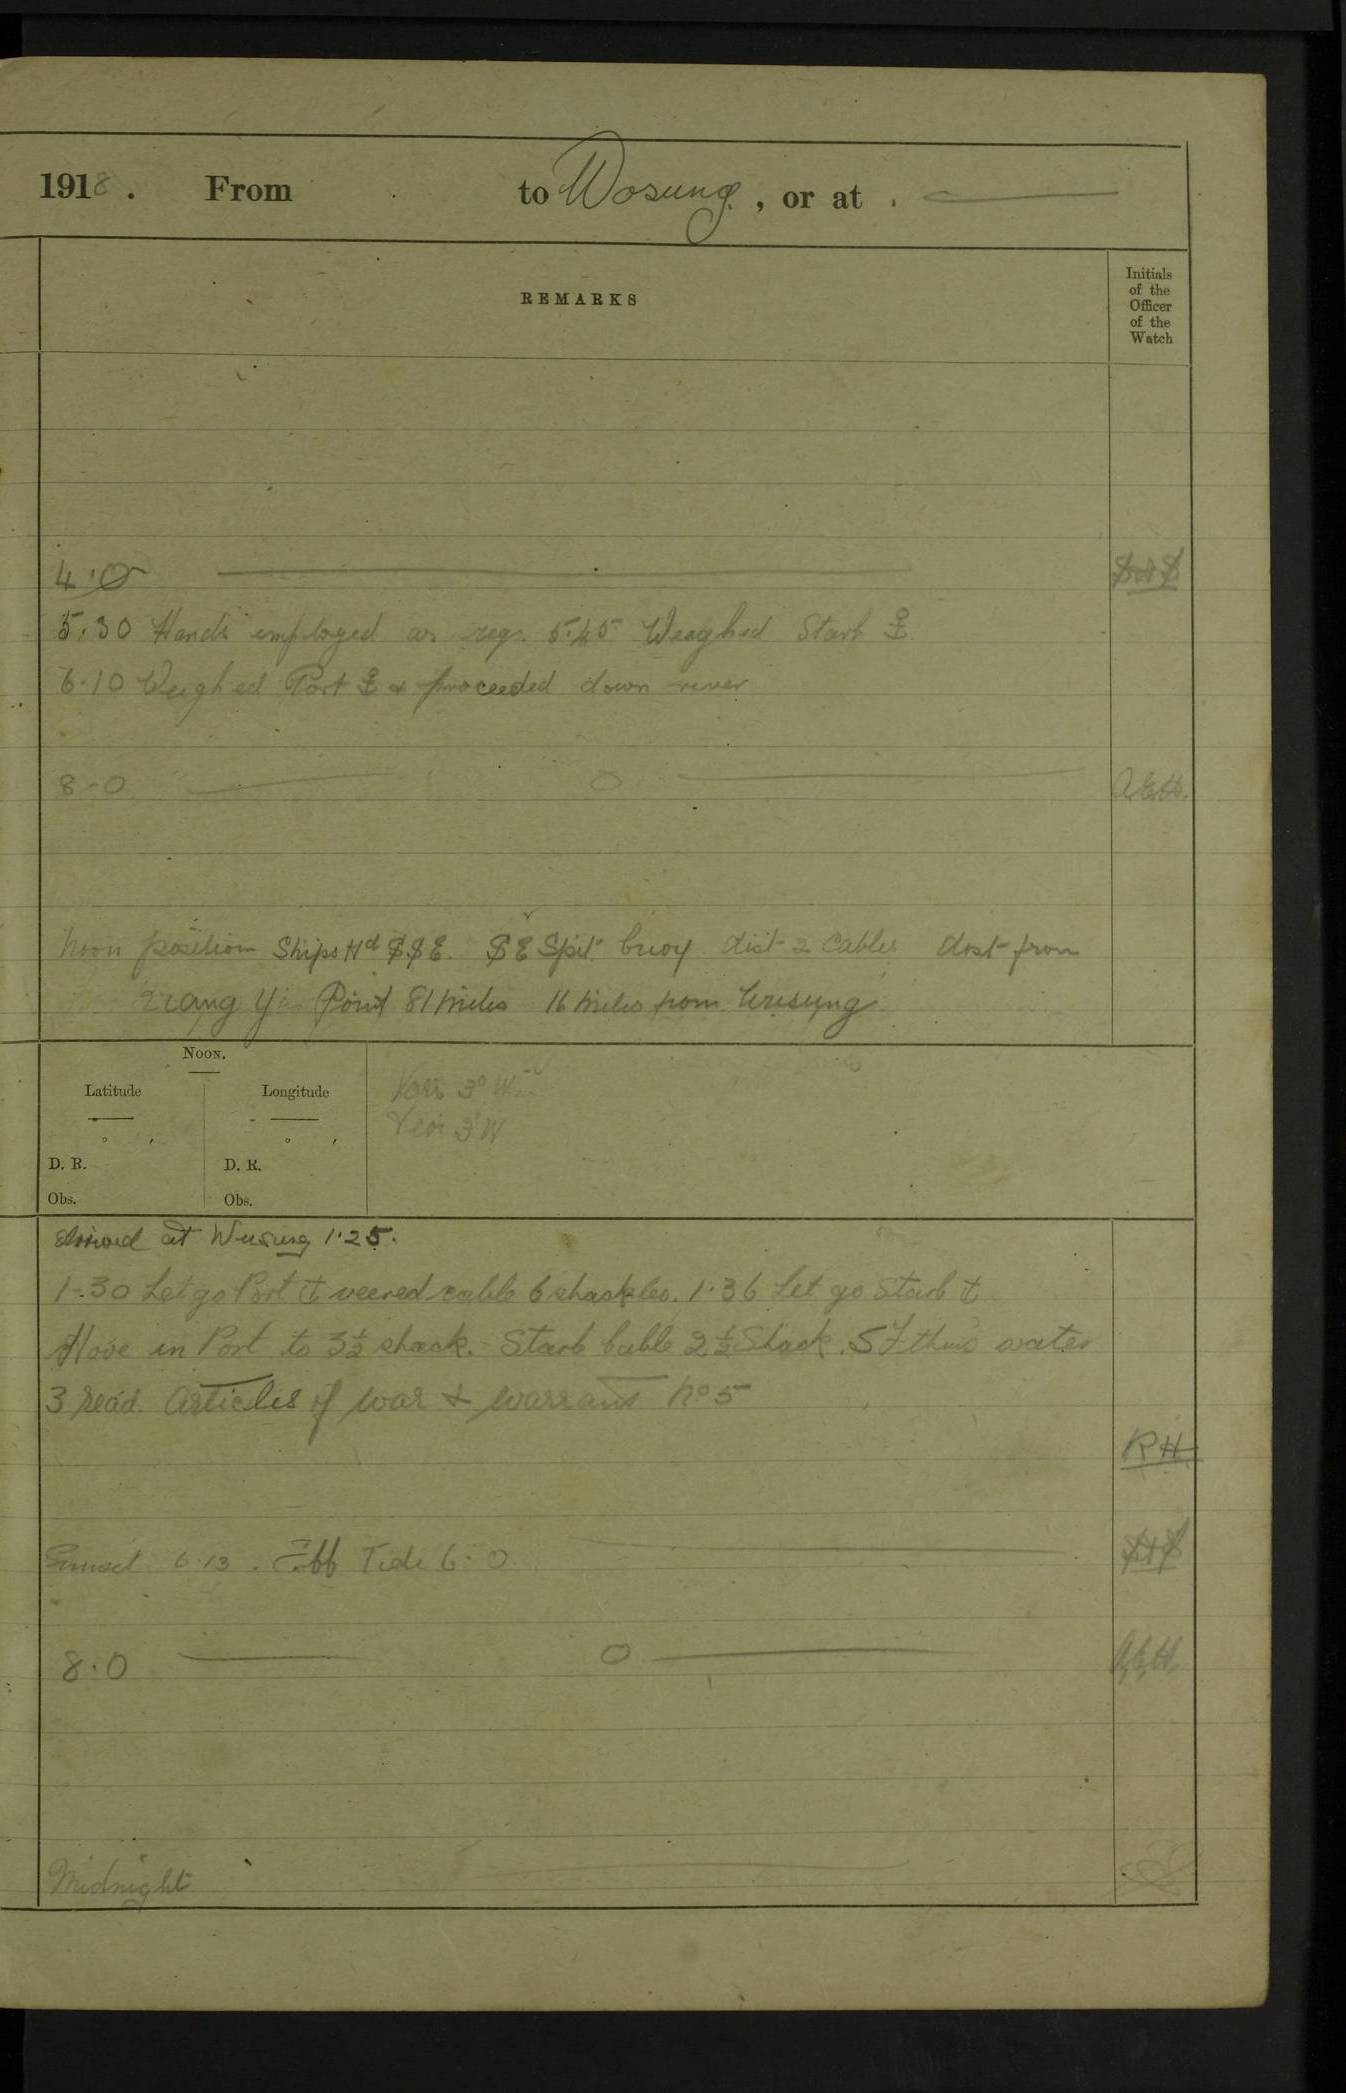 1918. From to Wosung, or at .
REMARKS
Initials
of the
Officer
of the
Watch
4.0
5.30 Hands employed as reqs. 5.45 Weighed Starb ⚓
6-10 Weighed Port ⚓ & proceeded down river
8-0 0
A.E.H.
Noon position Ships Hd SSE. SE Spit buoy dist 2 Cables dist from
Point 81 miles 16 miles from Wusung
NOON.
Latitude Longitude
° ′ ° ′
D. R. D. R.
Obs. Obs.
3° W
3°W
Arrived at Wusung 1.25.
1-.30 Let go Port ⚓ veered cable 6 shackles. 1.36 Let go Starb ⚓
Hove in Port to 3½ shack. Starb Cable 2½ Shack. 5 Fthms water
3 Read Articles of War & Warrant No 5
RH
Sunset 6.13. Ebb Tide 6-0
8.0 0
A.E.H.
Midnight